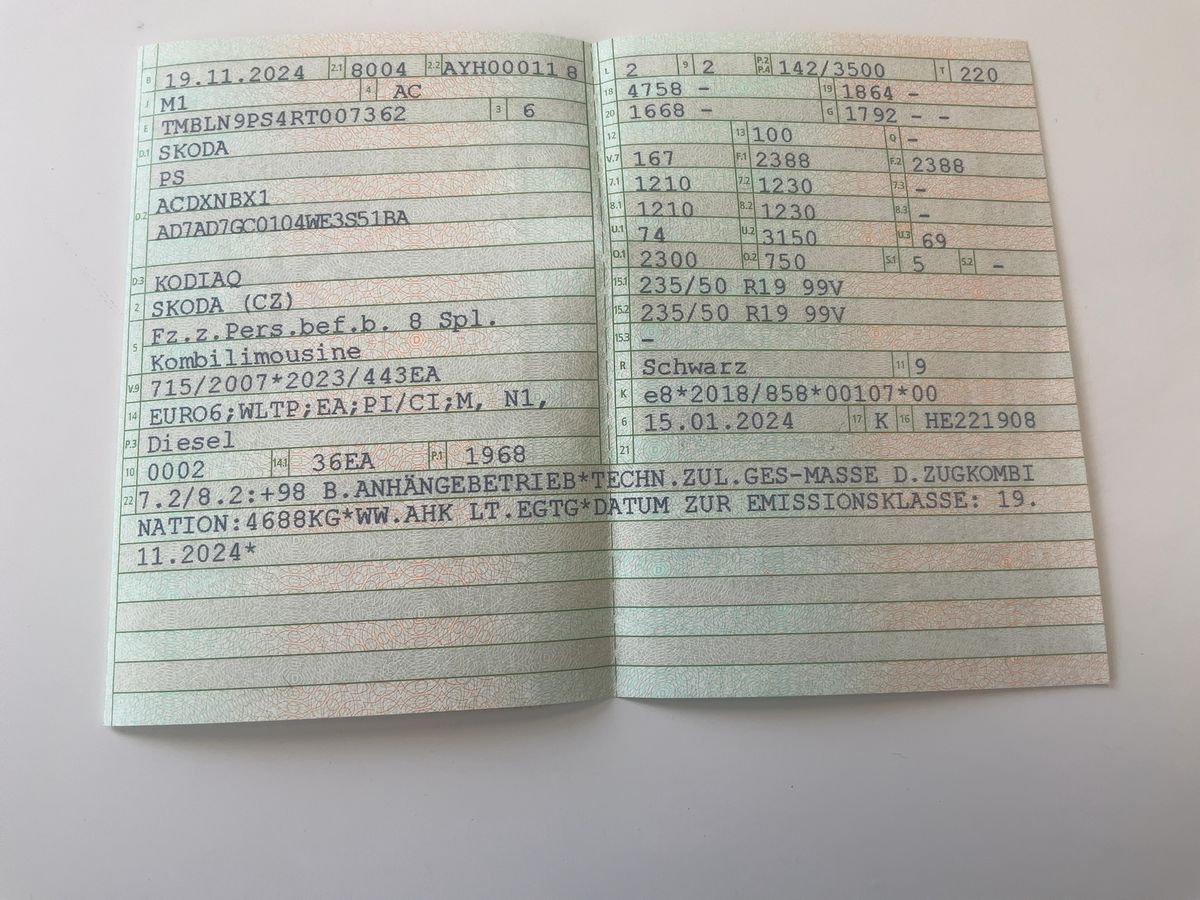 B 19.11.2024 2.1 8004 2.2 AYH00011 8
J M1 4 AC
E TMBLN9PS4RT007362 3 6
D.1 SKODA
PS
D.2 ACDXNBX1
AD7AD7GC0104WE3S51BA
D.3 KODIAQ
2 SKODA (CZ)
5 Fz.z.Pers.bef.b. 8 Spl.
Kombilimousine
V.9 715/2007*2023/443EA
14 EURO6;WLTP;EA;PI/CI;M, N1,
P.3 Diesel
10 0002 14.1 36EA P.1 1968
L 2 9 2 P.2 P.4 142/3500 T 220
18 4758 - 19 1864 -
20 1668 - G 1792 - -
12 13 100 Q -
V.7 167 F.1 2388 F.2 2388
7.1 1210 7.2 1230 7.3 -
8.1 1210 8.2 1230 8.3 -
U.1 74 U.2 3150 U.3 69
O.1 2300 O.2 750 S.1 5 S.2 -
15.1 235/50 R19 99V
15.2 235/50 R19 99V
15.3 -
R Schwarz 11 9
K e8*2018/858*00107*00
6 15.01.2024 17 K 16 HE221908
21
22 7.2/8.2:+98 B.ANHÄNGEBETRIEB*TECHN.ZUL.GES-MASSE D.ZUGKOMBI
NATION:4688KG*WW.AHK LT.EGTG*DATUM ZUR EMISSIONSKLASSE: 19.
11.2024*